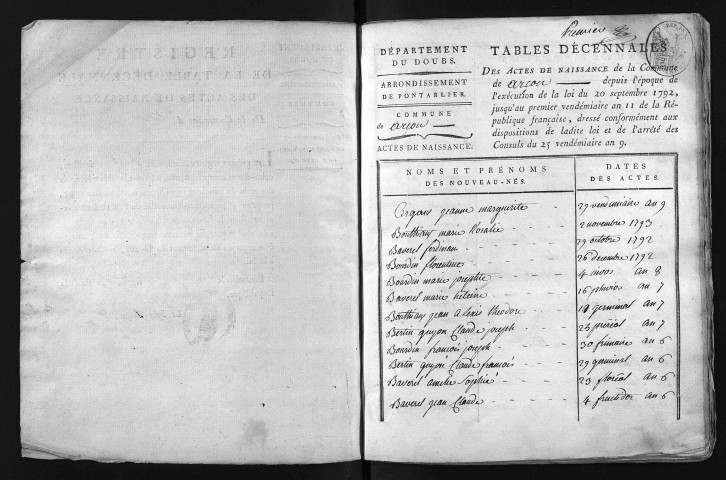 Premier
DÉPARTEMENT
DU DOUBS.
ARRONDISSEMENT
DE PONTARLIER.
COMMUNE
de arcon
ACTES DE NAISSANCE.
TABLES DÉCENNALES
DES ACTES DE NAISSANCE de la Commune
de arcon depuis l'époque de
l'exécution de la loi du 20 septembre 1792,
jusqu'au premier vendémiaire an 11 de la Ré-
publique française, dressé conformément aux
dispositions de ladite loi et de l'arrêté des
Consuls du 25 vendémiaire an 9.
NOMS ET PRÉNOMS
DES NOUVEAU-NÉS.
DATES
DES ACTES.
jeanne margueritte 27 vendémiaire an 9
marie Rosalie 2 novembre 1793
Baverel ferdinan 29 octobre 1792
Bourdin florentine 26 decembre 1792
Bourdin marie josephte 4 nivos an 8
Baverel marie heleine 16 pluvios an 7
jean alexis theodore 19 germinal an 7
Bertin guyon Claude joseph 25 prereal an 7
Bourdin francois joseph 30 frimaire an 6
Bertin guyon Claude francois 29 germinal an 6
Baverel amelie Sophie 23 floreal an 6
Baverel jean Claude 4 fructidor an 6